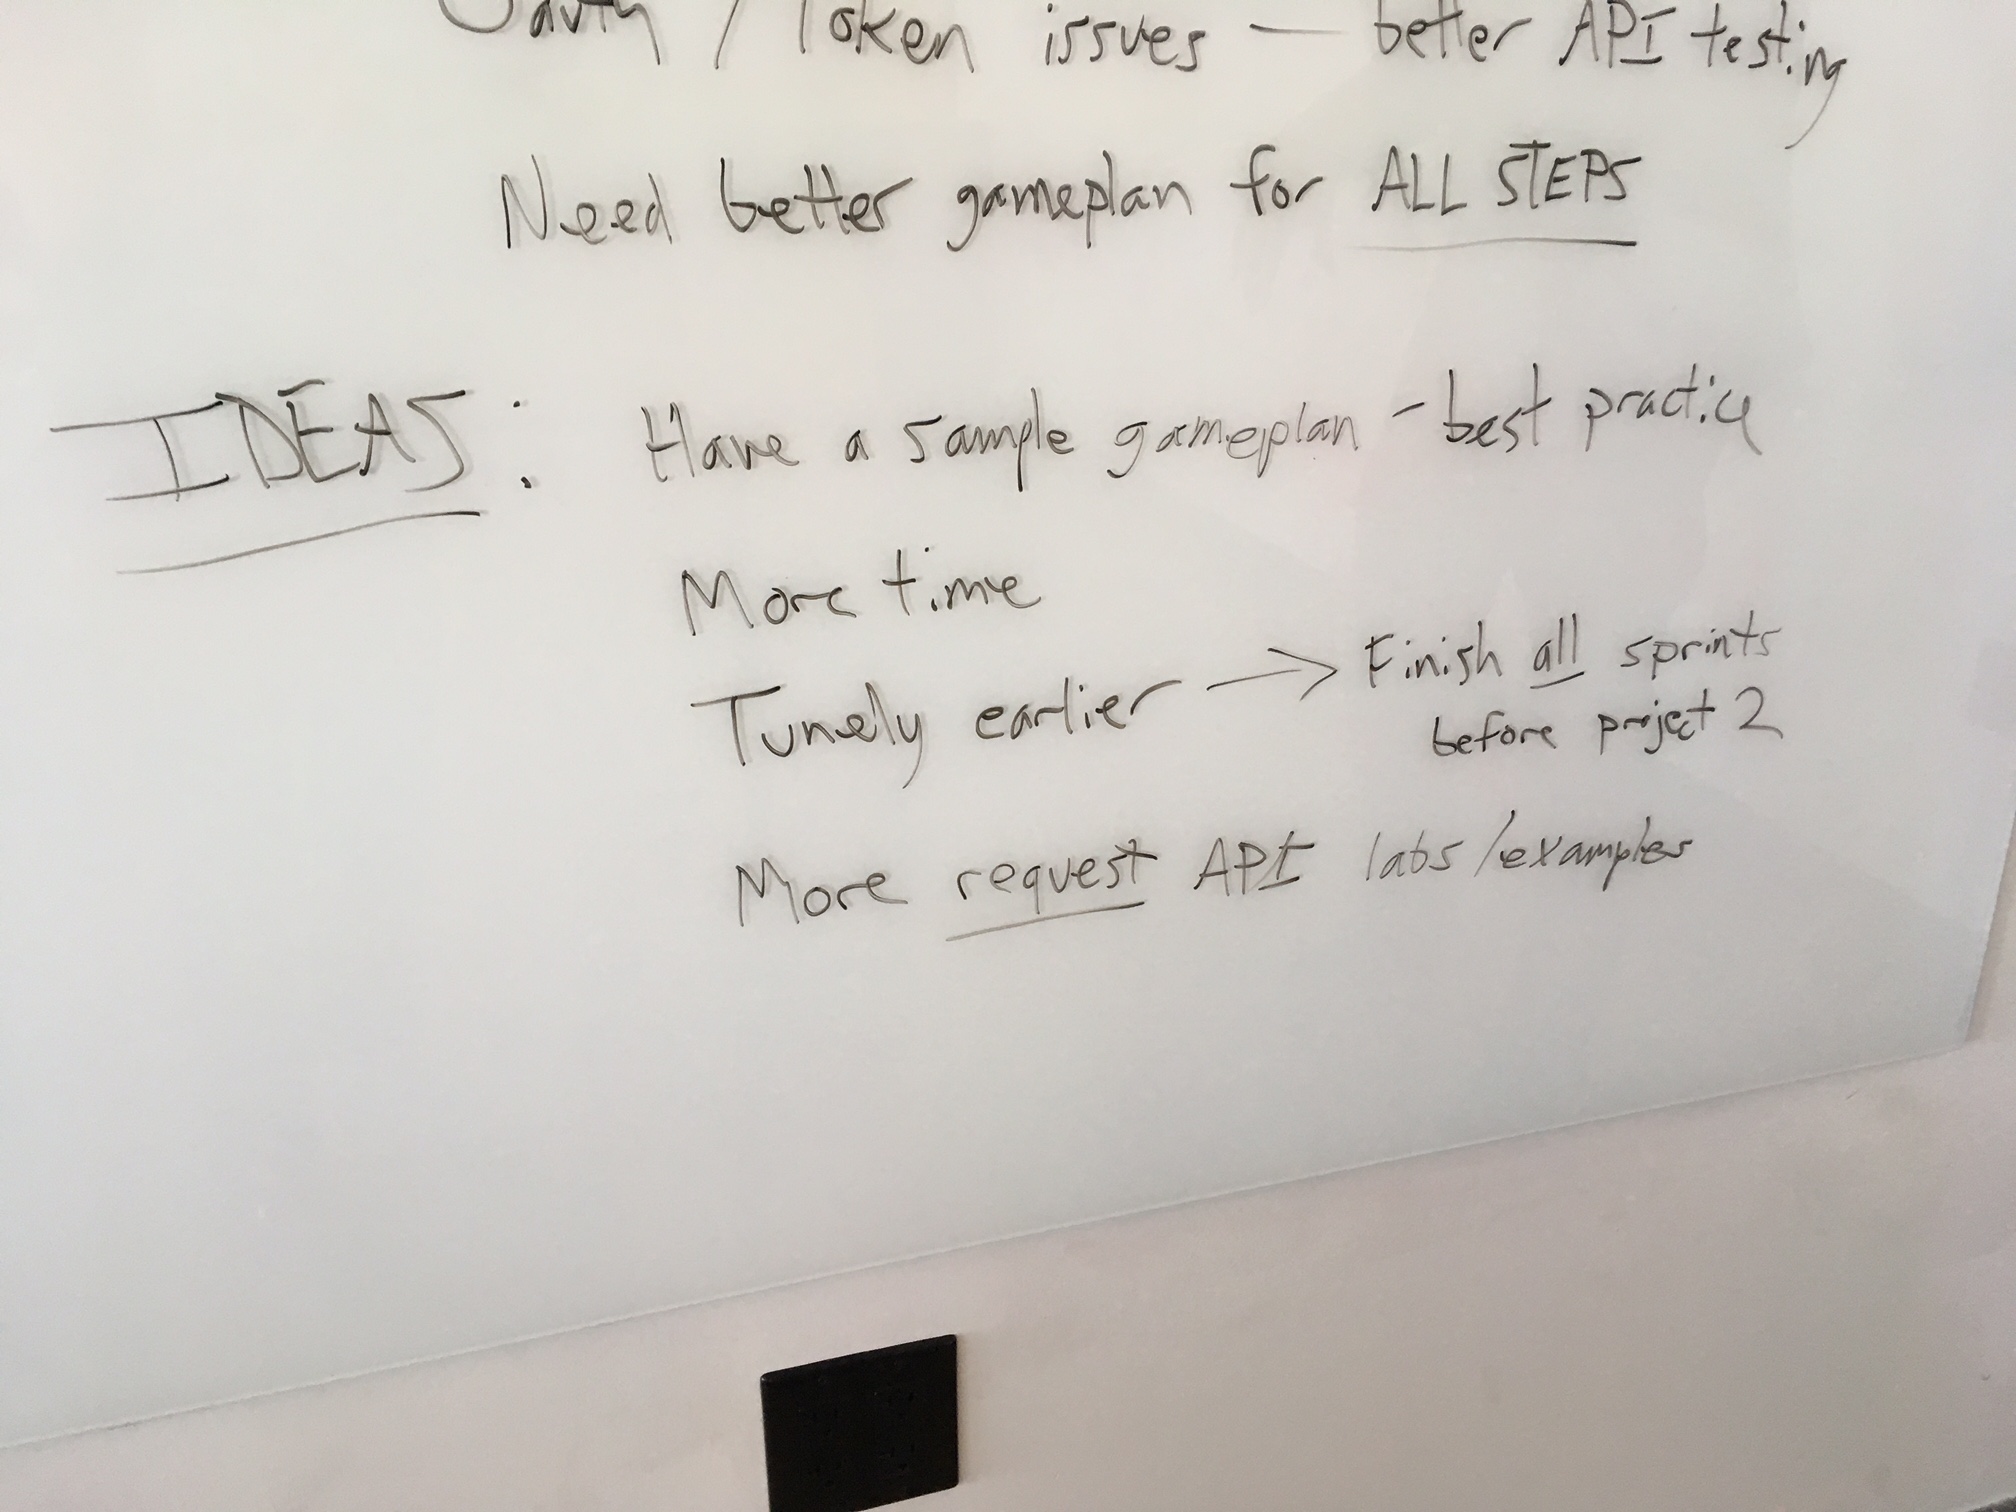 Oauth / Token issues — better API testing
Need better gameplan for ALL STEPS
IDEAS: Have a sample gameplan - best practice
More time
Tunely earlier → Finish all sprints
before project 2
More request API labs/examples